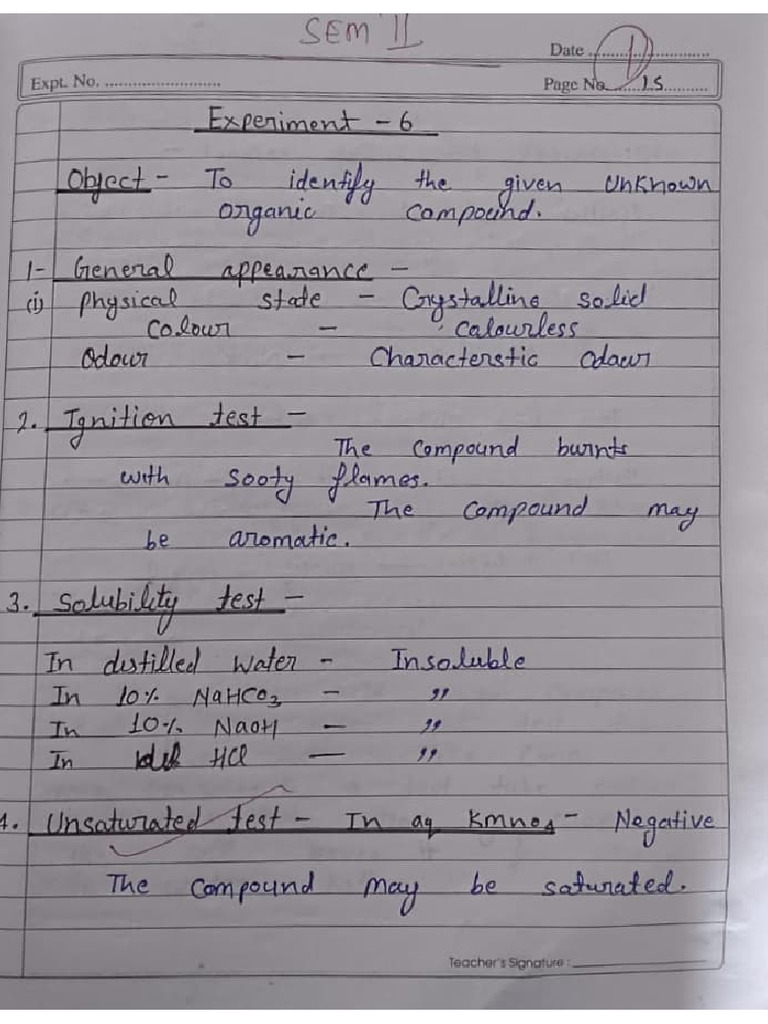 SEM II
Date
Expt. No.
Page No. 15
Experiment - 6
Object - To identify the given unknown
organic compound.
1- General appearance -
(i) Physical state - Crystalline solid
Colour - Calourless
Odour - Characterstic Odour
2. Ignition test -
The compound burnts
with sooty flames.
The compound may
be aromatic.
3. Solubility test -
In distilled water - Insoluble
In 10% NaHCO3 - ,,
In 10% NaOH - ,,
In HCl - ,,
4. Unsaturated test - In aq KmnO4 - Negative
The compound may be saturated.
Teacher's Signature :